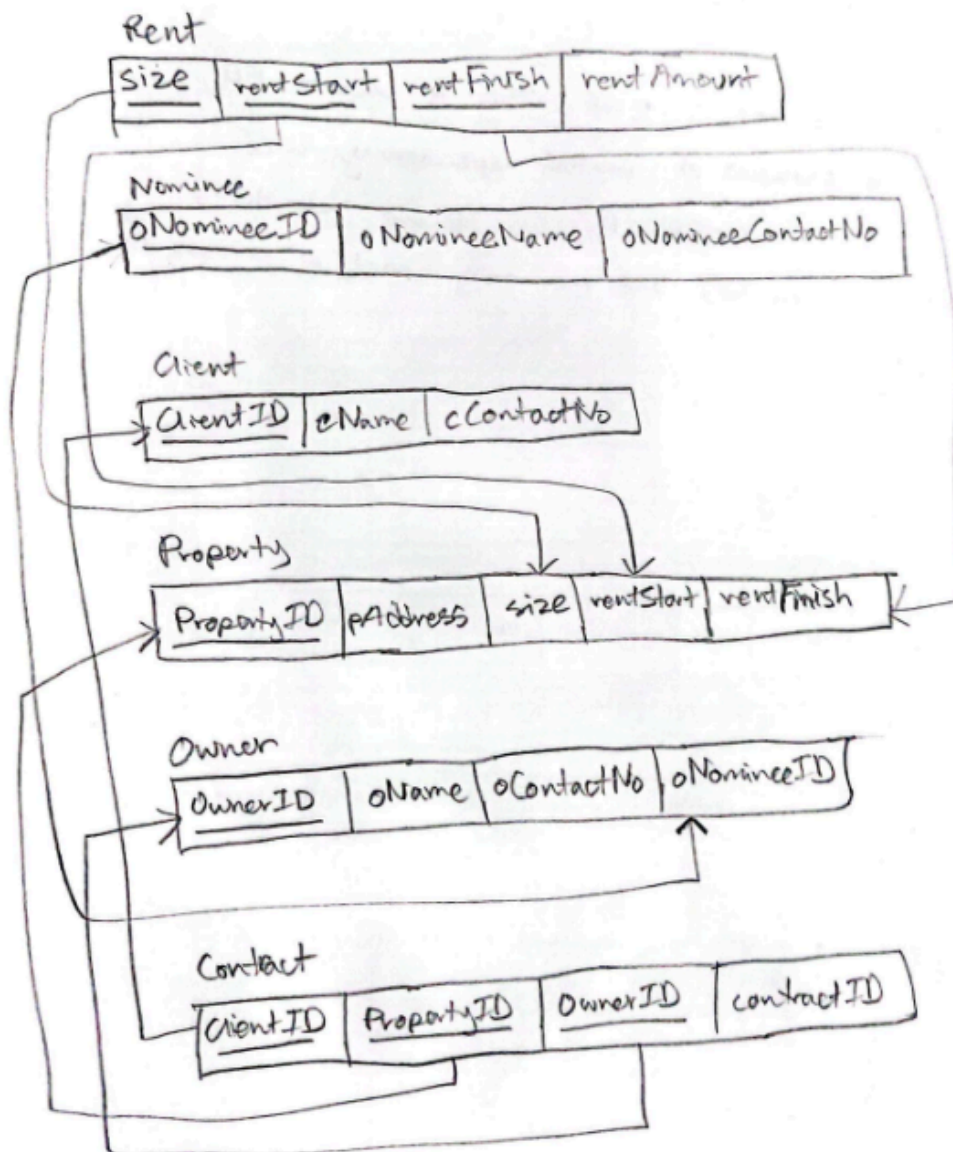 Rent
size rentStart rentFinish rentAmount
Nominee
oNomineeID oNomineeName oNomineeContactNo
Client
ClientID cName cContactNo
Property
PropertyID pAddress size rentStart rentFinish
Owner
OwnerID oName oContactNo oNomineeID
Contact
ClientID PropertyID OwnerID contractID